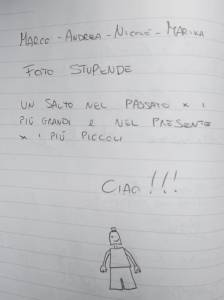 MARCO - ANDREA - NICOLÒ - MARIKA
FOTO STUPENDE
UN SALTO NEL PASSATO x i
PIÙ GRANDI E NEL PRESENTE
x i PIÙ PICCOLI
CIAO!!!